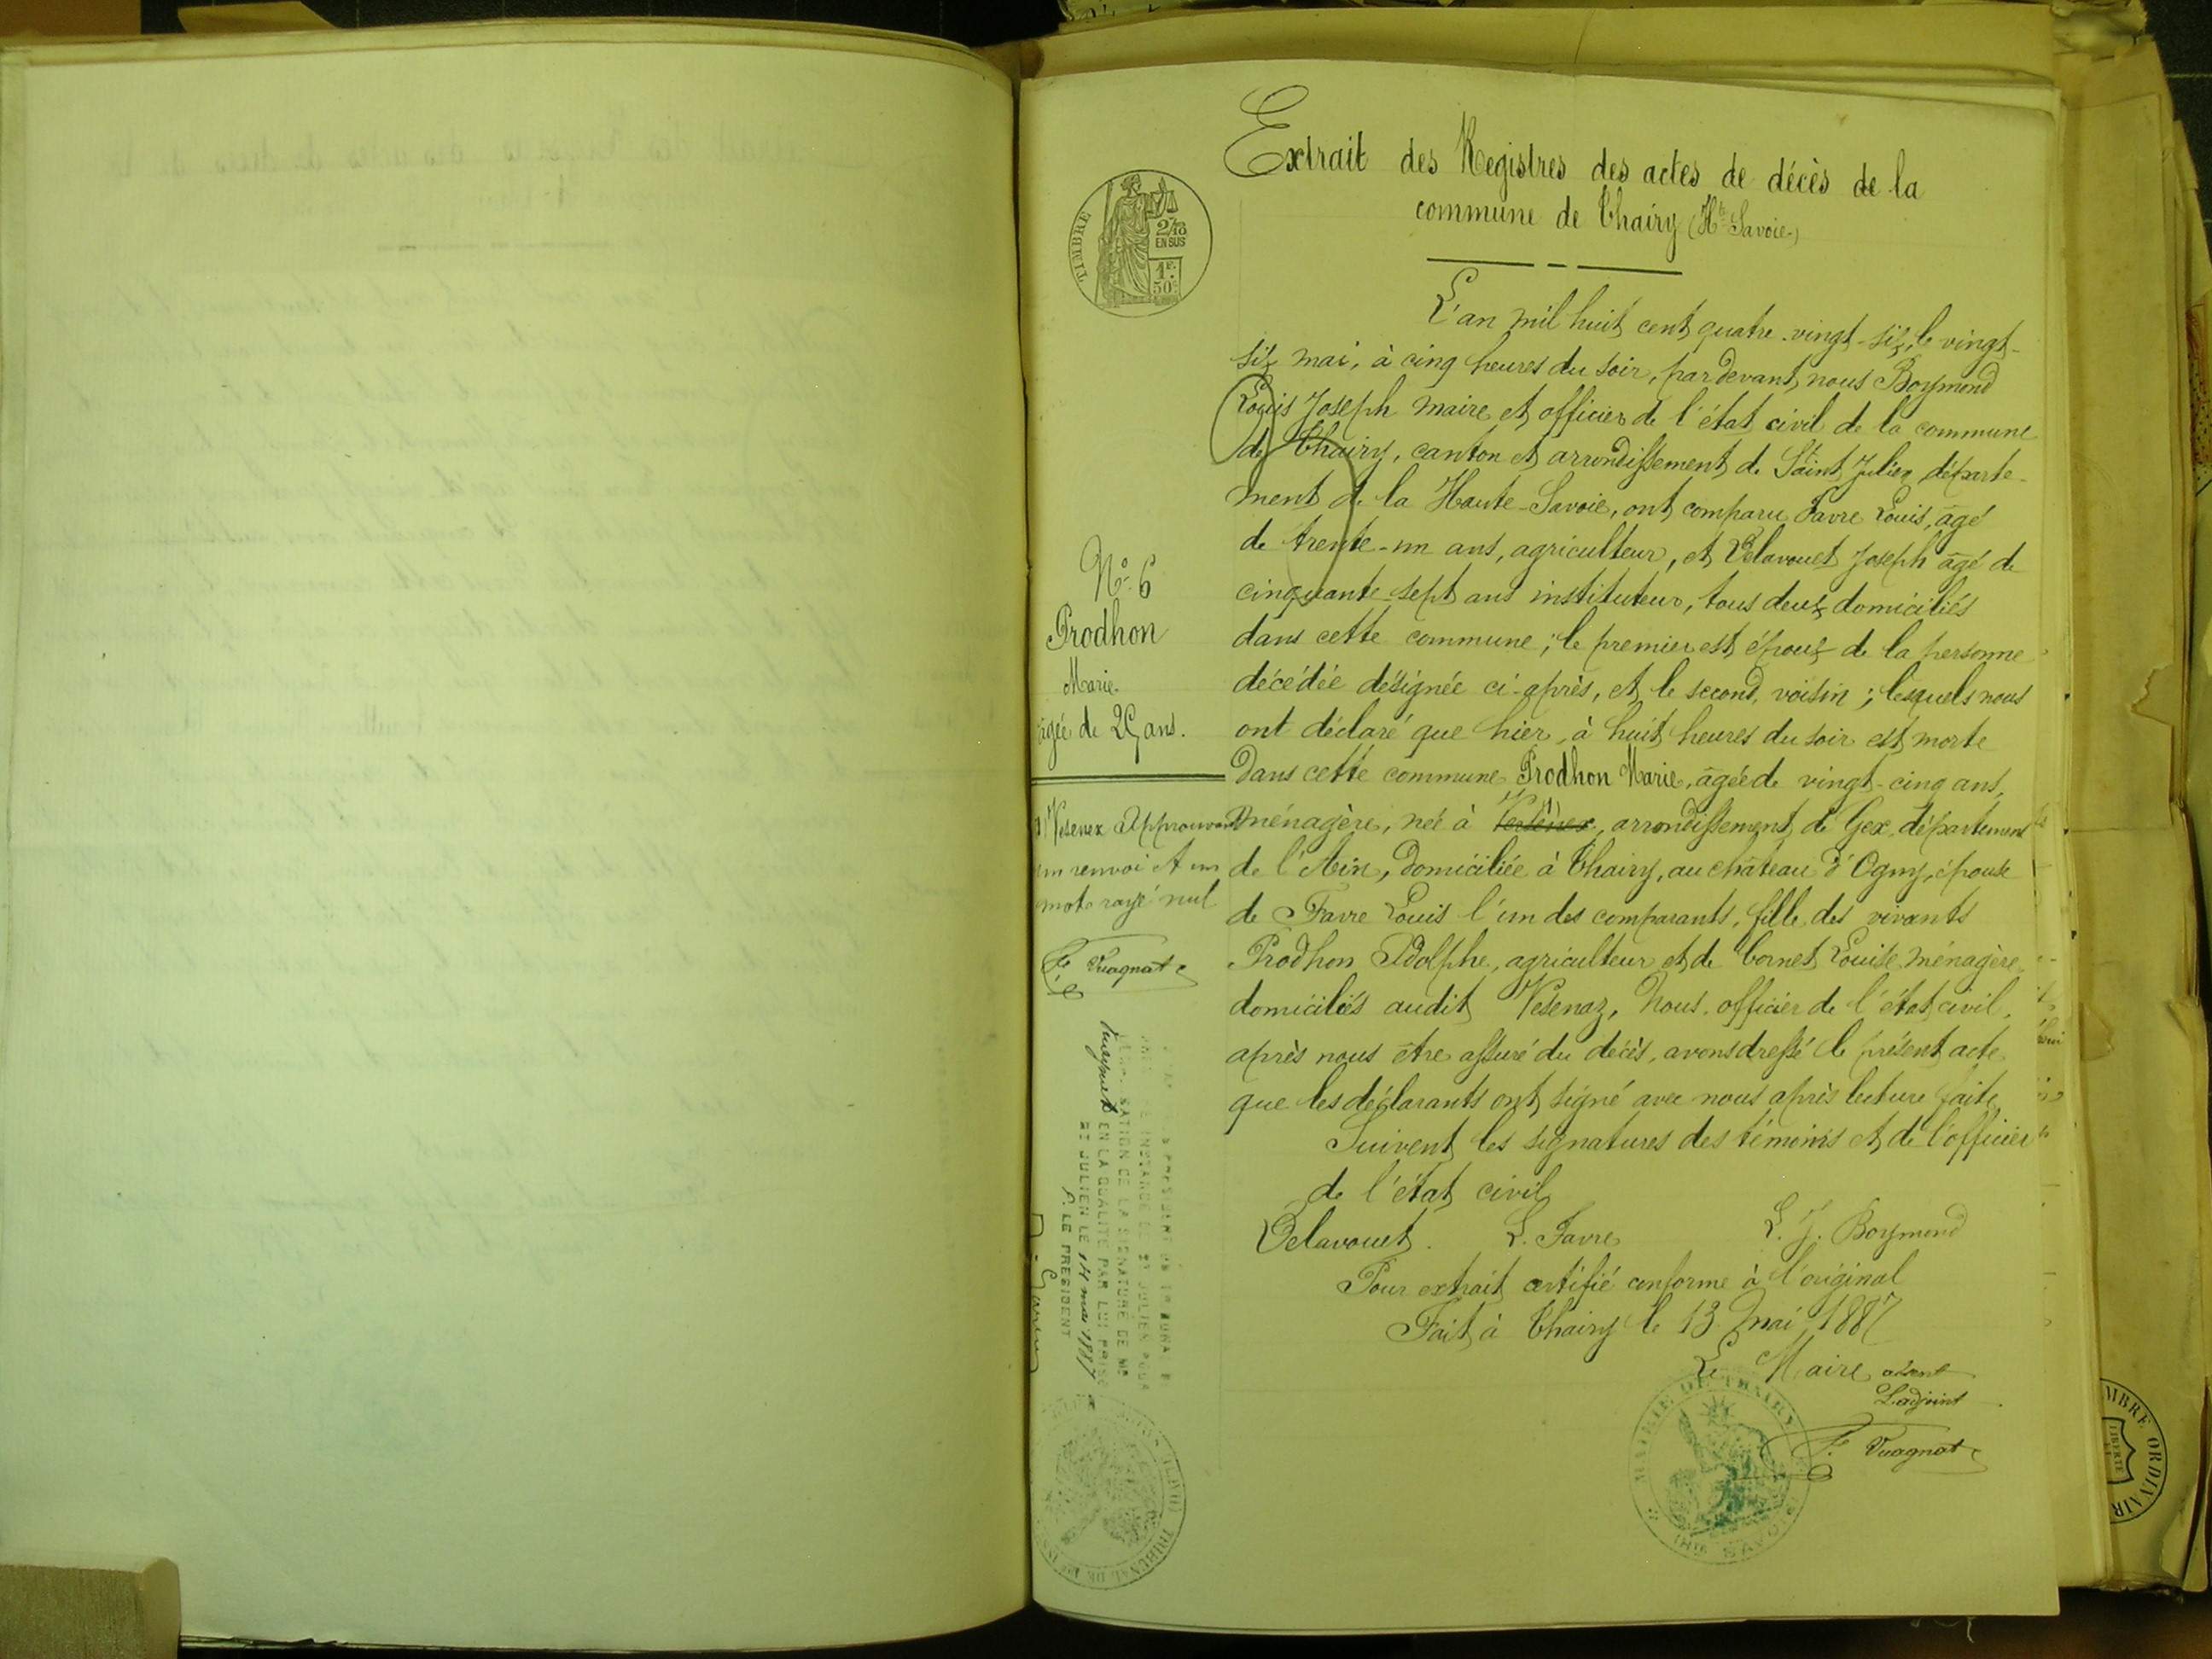 Extrait des Registres des actes de décès de la
commune de Thairy (Hte Savoie)
TIMBRE
2/10
EN SUS
1F.
50c
L'an mil huit cent quatre-vingt-six, le vingt-
six mai, à cinq heures du soir, par devant nous Boymond
Louis Joseph maire et officier de l'état civil de la commune
de Thairy, canton et arrondissement de Saint Julien, départe-
ment de la Haute-Savoie, ont comparu Favre Louis, âgé
de trente-un ans, agriculteur, et Delavouet Joseph âgé de
cinquante-sept ans instituteur, tous deux domiciliés
dans cette commune ; le premier est époux de la personne
décédée désignée ci-après, et le second, voisin ; lesquels nous
ont déclaré que hier, à huit heures du soir est morte
dans cette commune Prodhon Marie, âgée de vingt-cinq ans,
ménagère, née à (1), arrondissement de Gex, département
de l'Ain, domiciliée à Thairy, au château d'Ogny, épouse
de Favre Louis l'un des comparants, fille des vivants
Prodhon Adolphe, agriculteur et de Cornet Louise ménagère
domiciliés audit Vesenaz, Nous, officier de l'état civil,
après nous être assuré du décès, avons dressé le présent acte
que les déclarants ont signé avec nous après lecture faite
Suivent les signatures des témoins et de l'officier
de l'état civil
Delavouet. L. Favre L. J. Boymond
Pour extrait certifié conforme à l'original
Fait à Thairy le 13 Mai 1887
Le Maire absent
L'adjoint
F. Vuagnat
MAIRIE DE THAIRY
(Hte SAVOIE)
No. 6
Prodhon
Marie
âgée de 25 ans.
Vesenex Approuvant
un renvoi et un
mot rayé nul
F. Vuagnat
INSTANCE DE ST JULIEN POUR
SATION DE LA SIGNATURE DE MR
Vuagnat EN LA QUALITÉ PAR LUI PRISE
ST JULIEN LE 14 mai 1887
P. LE PRESIDENT
TRIBUNAL DE
TIMBRE ORDINAIR